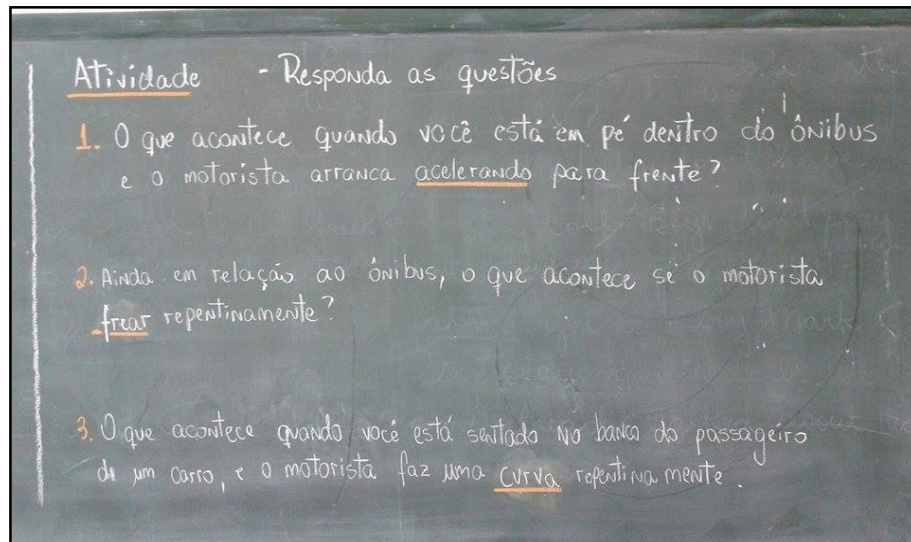 Atividade - Responda as questões
1. O que acontece quando você está em pé dentro do ônibus
e o motorista arranca acelerando para frente?
2. Ainda em relação ao ônibus, o que acontece se o motorista
frear repentinamente?
3. O que acontece quando você está sentado no banco do passageiro
de um carro, e o motorista faz uma curva repentinamente.